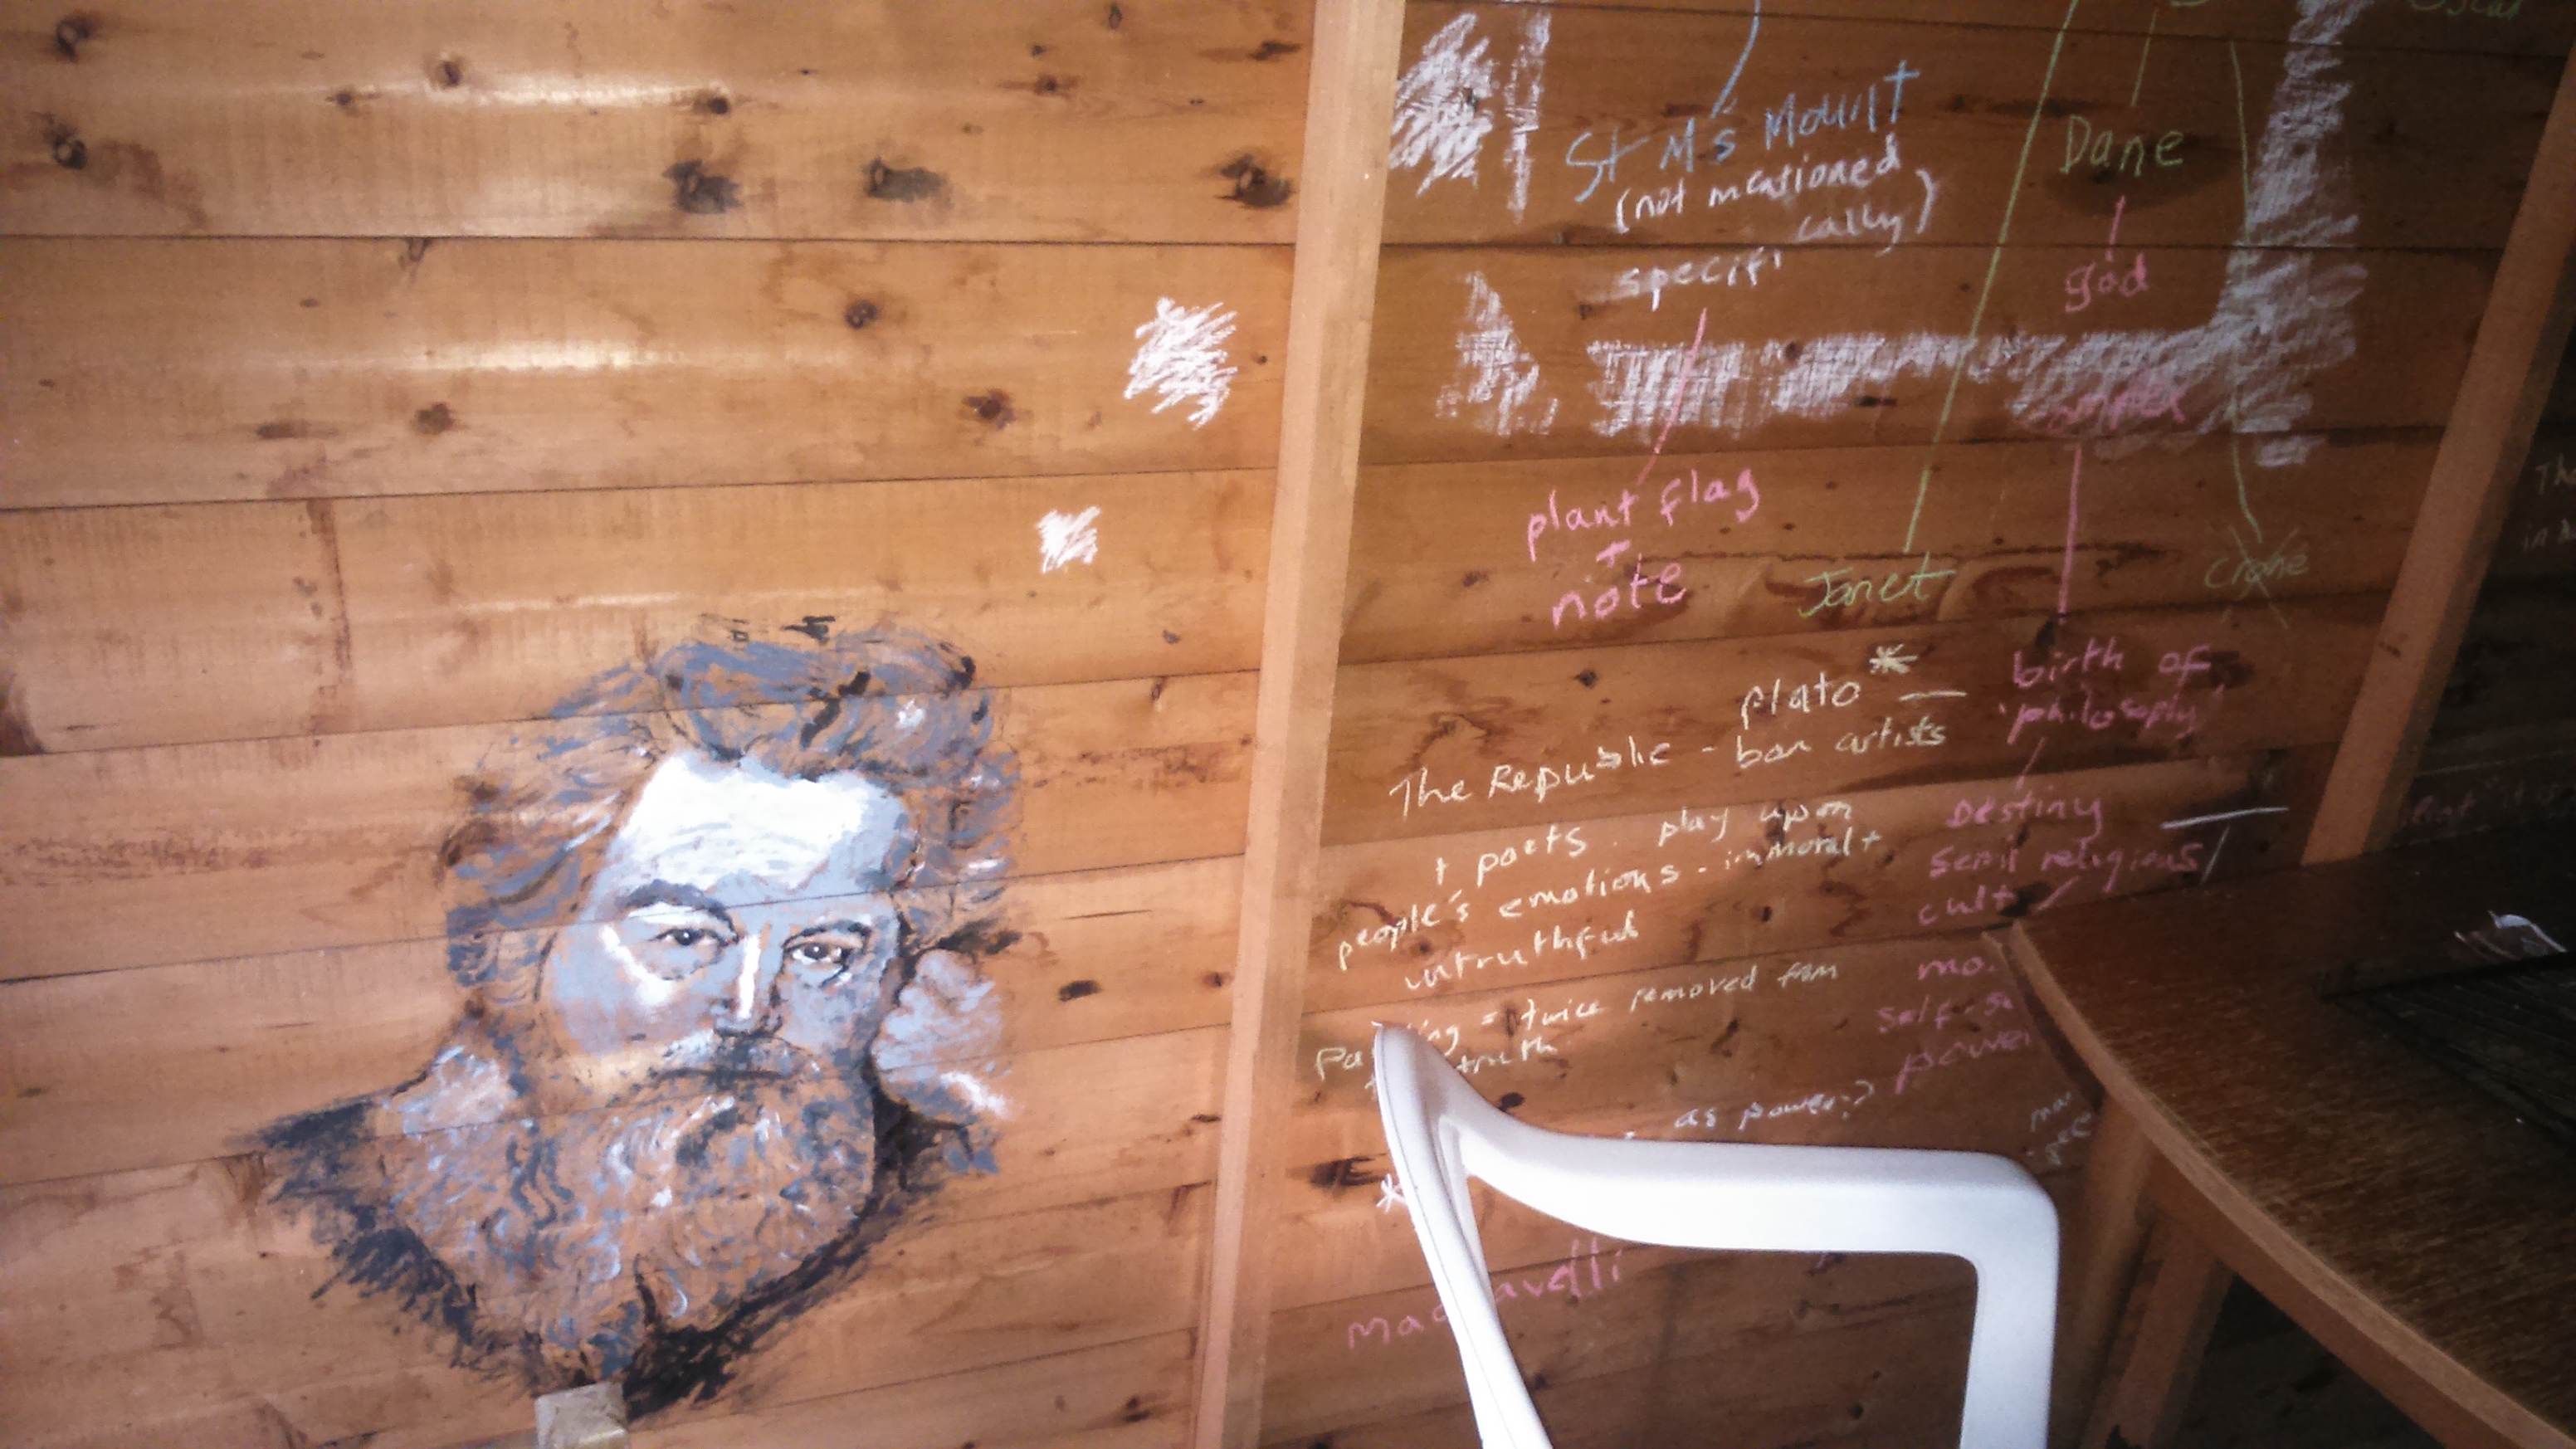 St M's Mount
(not mentioned
specifi cally)
plant flag
+
note
Dane
god
complex
Janet
Crane
plato* —
birth of
'philosophy'
The Republic - ban artists
+ poets. play upon
people's emotions. immoral +
untruthful
Destiny
semi religious
cult
twice removed from
truth
mo.
self-s
power
as power?
*